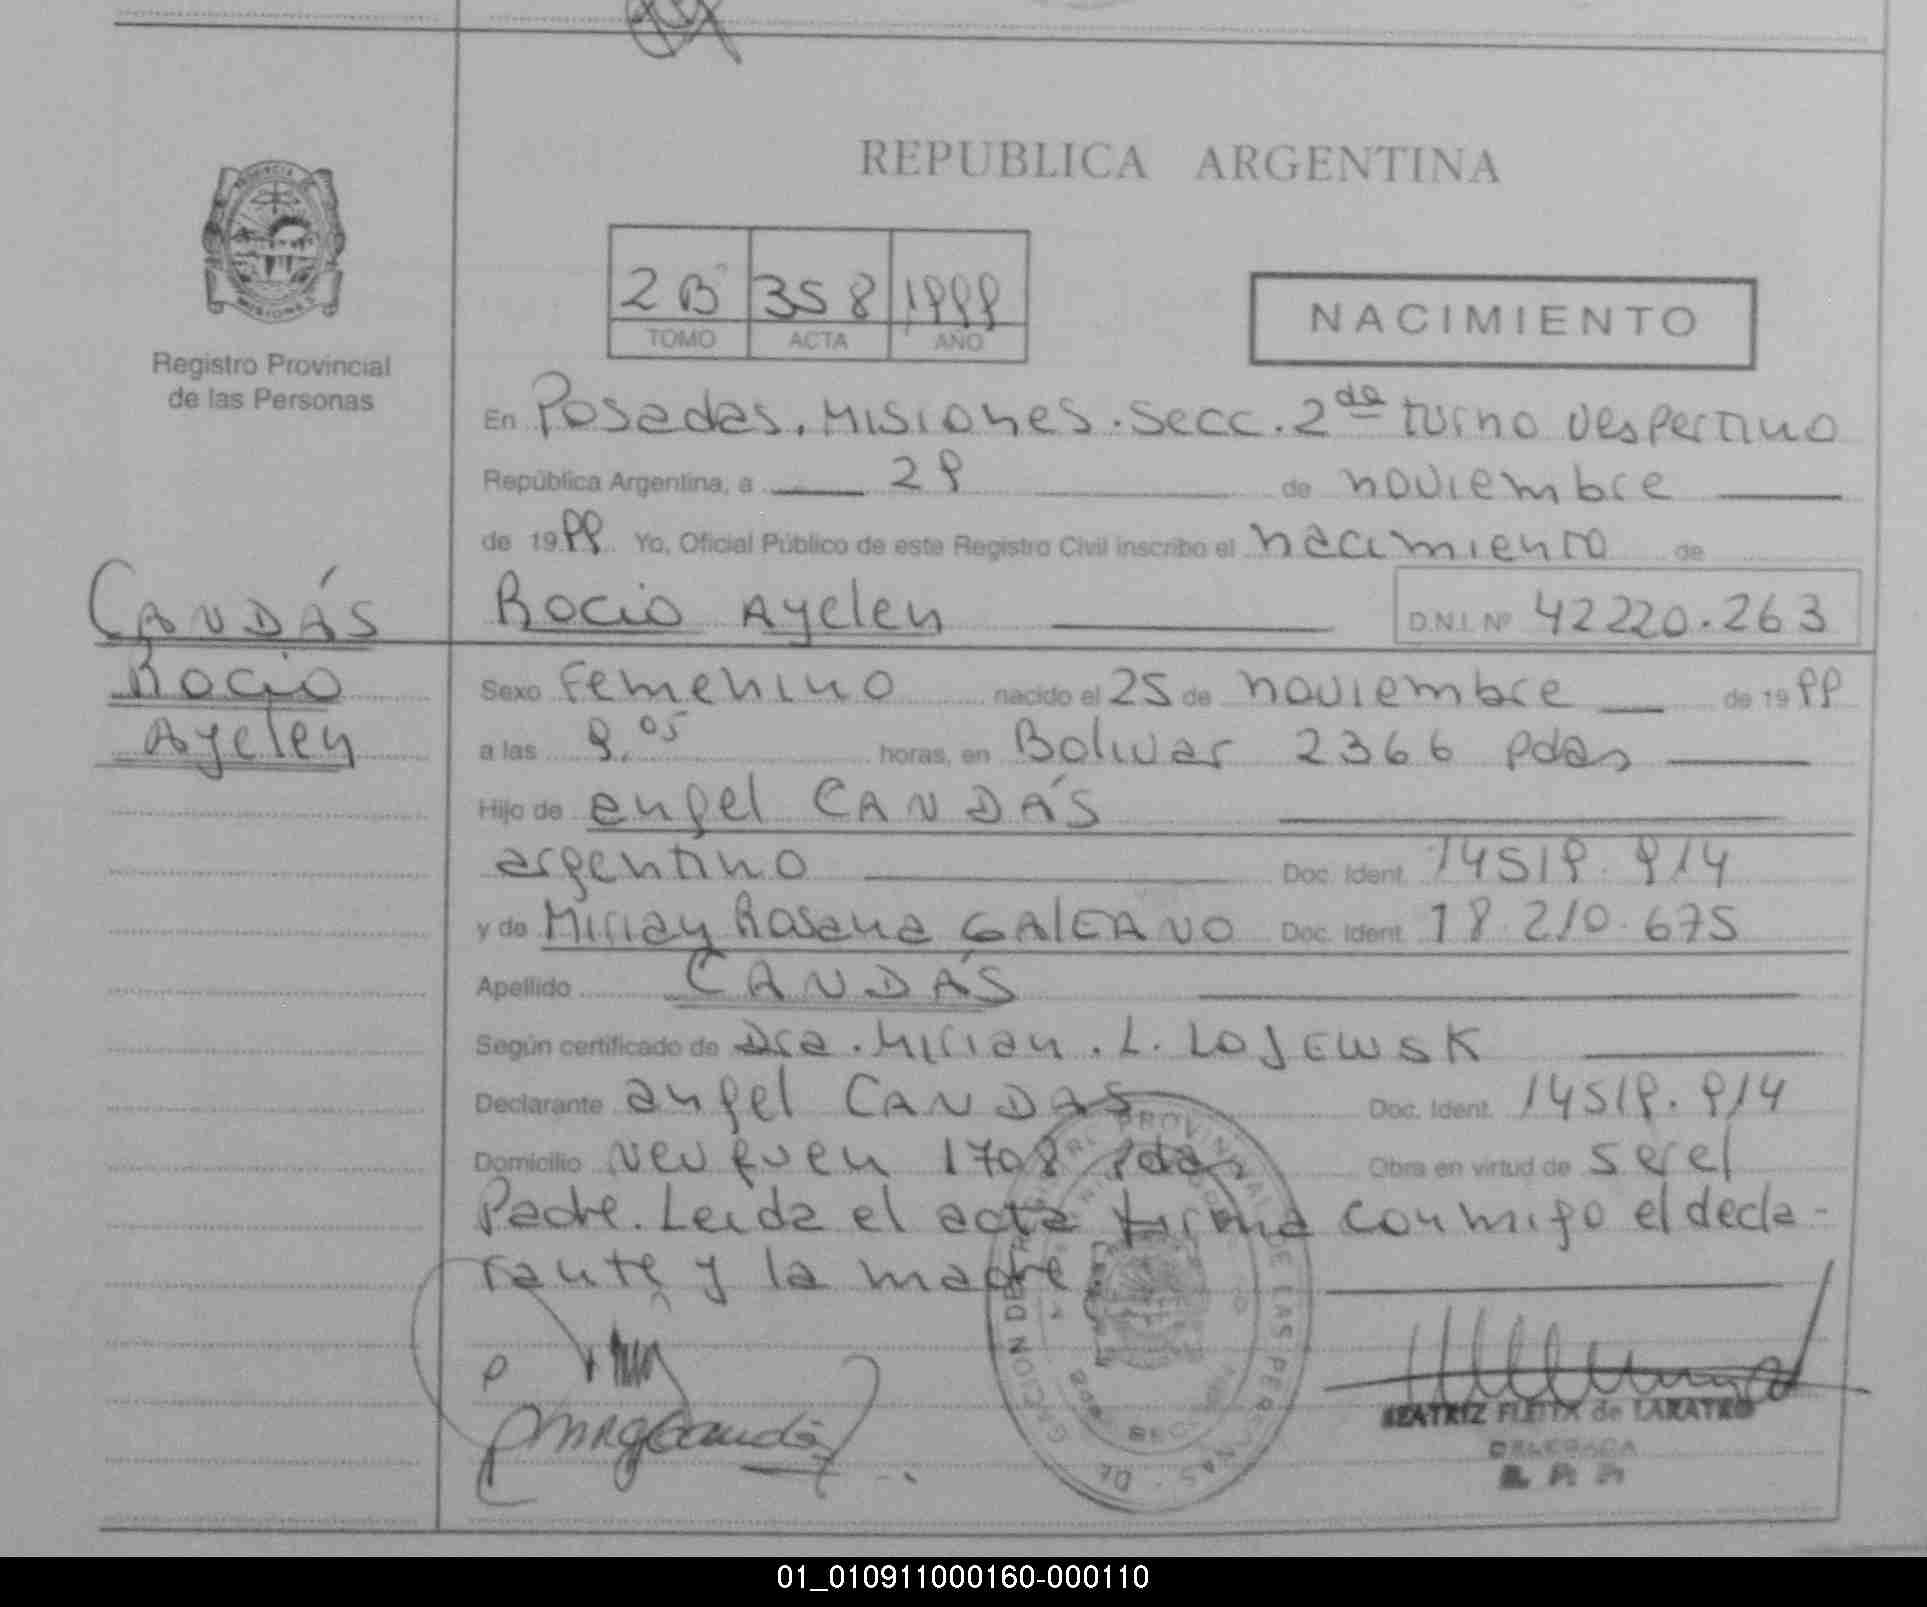 REPUBLICA ARGENTINA
PROVINCIA DE
MISIONES
Registro Provincial
de las Personas
2 B 358 1999
TOMO ACTA AÑO
NACIMIENTO
En Posadas. Misiones. Secc. 2da turno vespertino
República Argentina, a 29 de noviembre
de 1999 Yo, Oficial Público de este Registro Civil inscribo el nacimiento de
CANDÁS
Rocio
Ayelen
Rocio Ayelen D.N.I. Nº 42220.263
Sexo femenino nacido el 25 de noviembre de 1999
a las 9.05 horas, en Bolivar 2366 Pdas
Hijo de engel CANDÁS
argentino Doc. Ident. 14519.914
y de Mirian Rosana GALEANO Doc. Ident. 18.210.675
Apellido CANDÁS
Según certificado de Dra. Mirian. L. LOJEWSK
Declarante angel CANDAS Doc. Ident. 14519.914
Domicilio Neuquen 1708 Pdas Obra en virtud de ser el
Padre. Leida el acta firma conmigo el decla-
rante y la madre
PROVINCIAL DE LAS PERSONAS
BEATRIZ FLEITA de LARATRO
DELEGADA
01_010911000160-000110